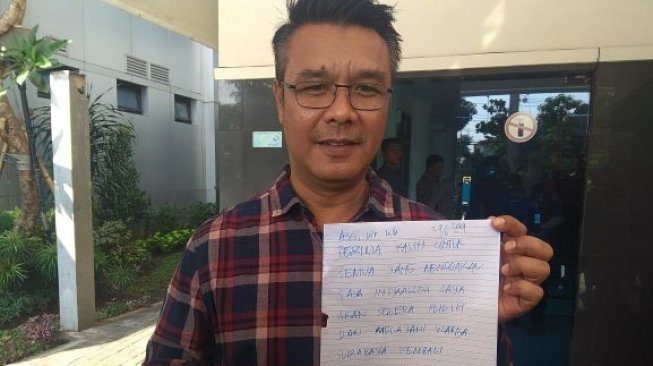 Ass. Wr Wb
TERIMA KASIH UNTUK
SEMUA YANG MENDOAKAN
SAYA INSYAALLOH SAYA
AKAN SEGERA PULIH
DAN MELAYANI WARGA
SURABAYA KEMBALI